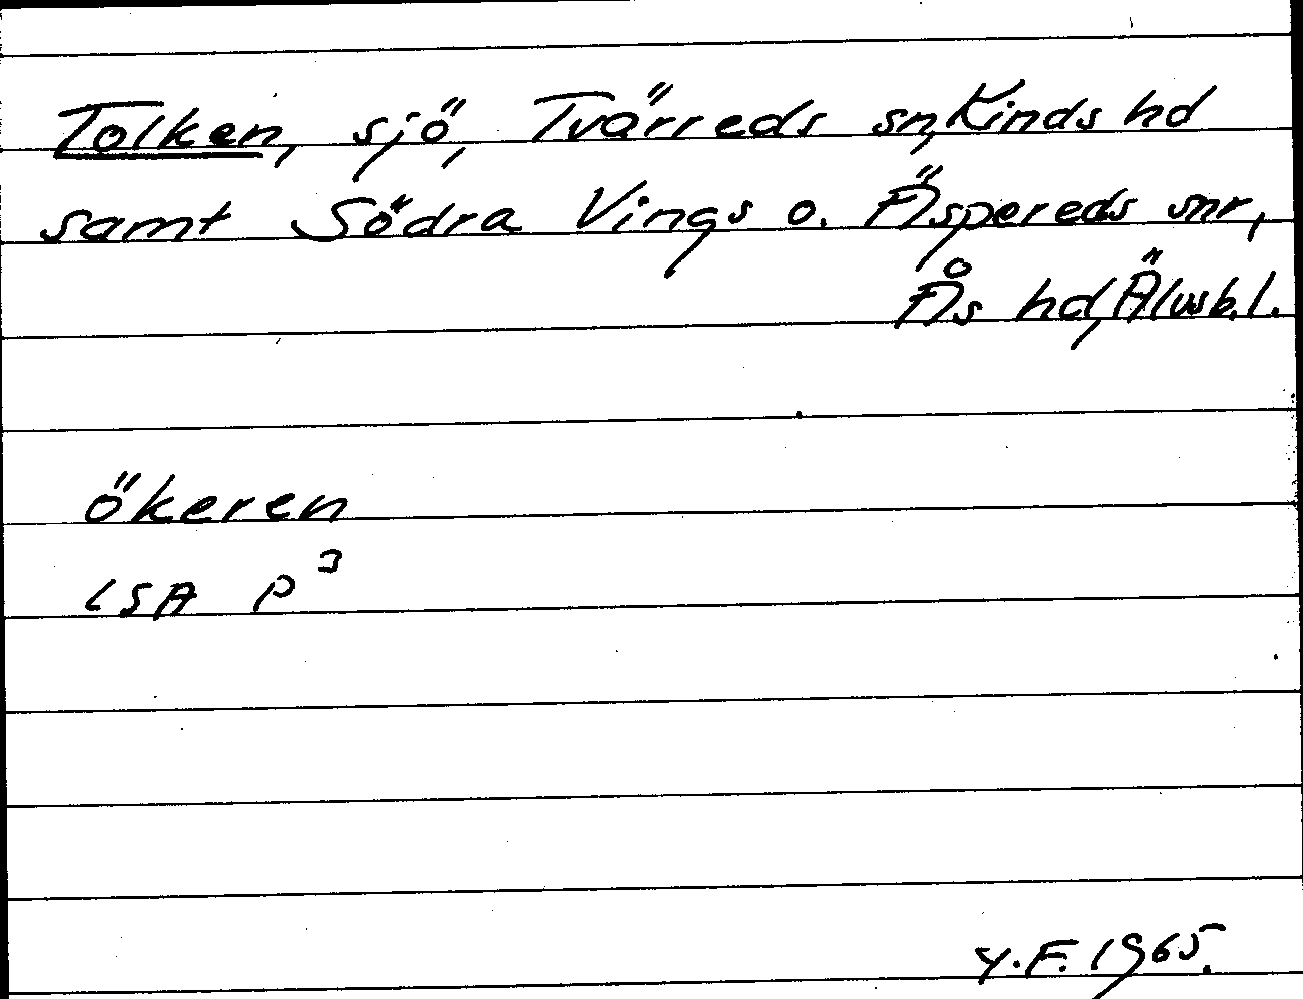 Tolken, sjö, Tvärreds sn, Kinds hd
samt Södra Vings o. Äspereds snr,
Ås hd, Älvsb. l.
ökeren
LSA P³
Y.F. 1965.